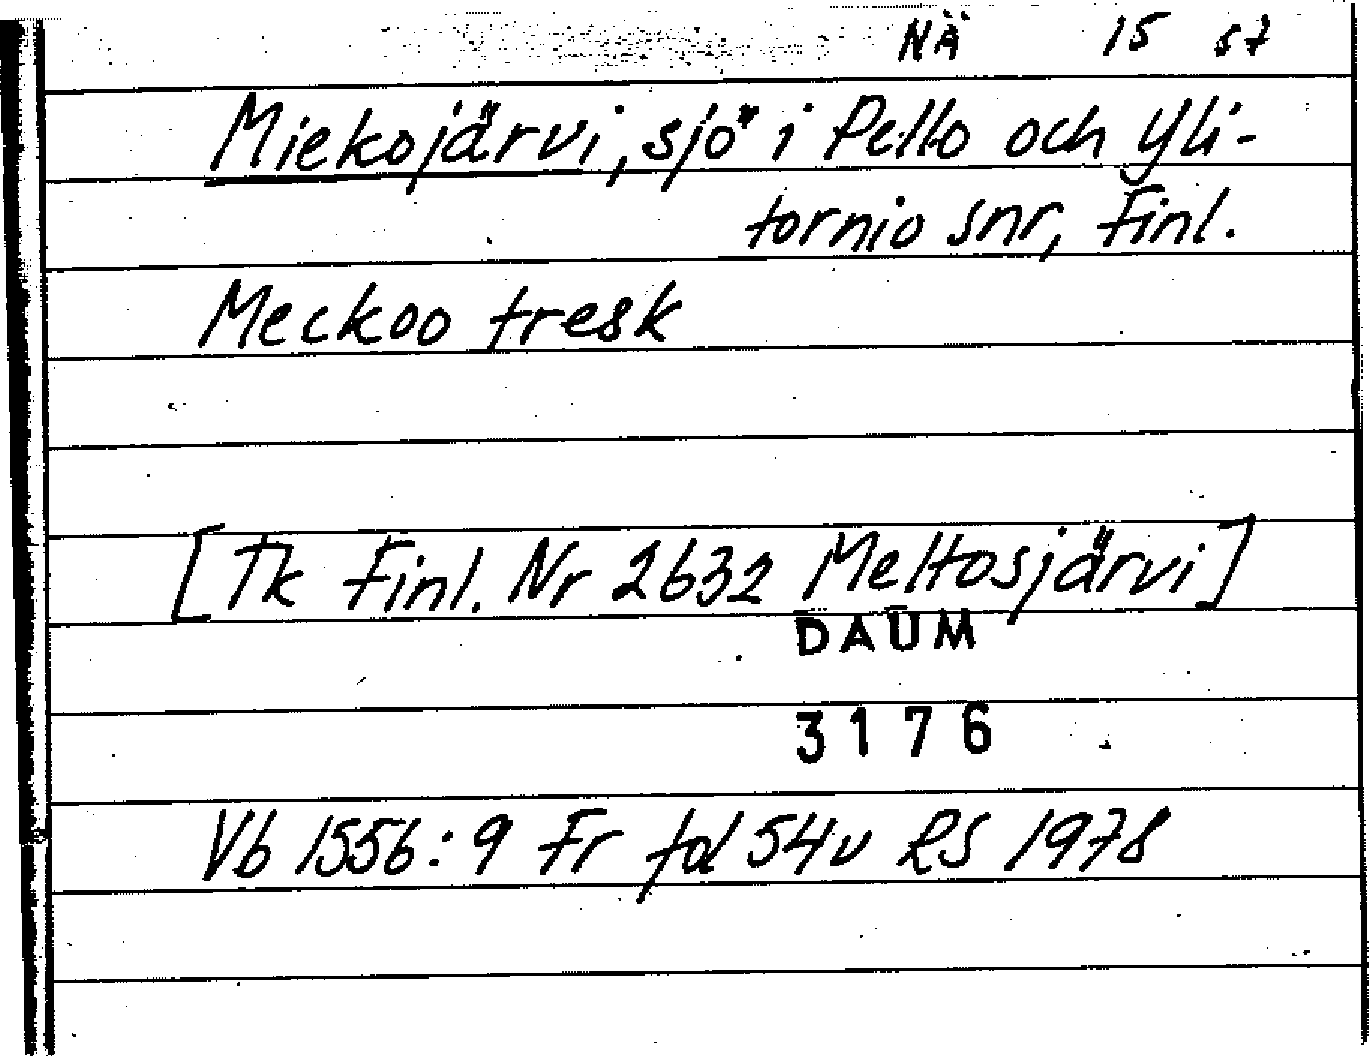 NÄ 15 57
Miekojärvi, sjö i Pello och Yli-
tornio snr, Finl.
Meckoo tresk
[Tk Finl. Nr 2632 Meltosjärvi]
DAUM
3176
Vb 1556:9 Fr fol 54v RS 1978